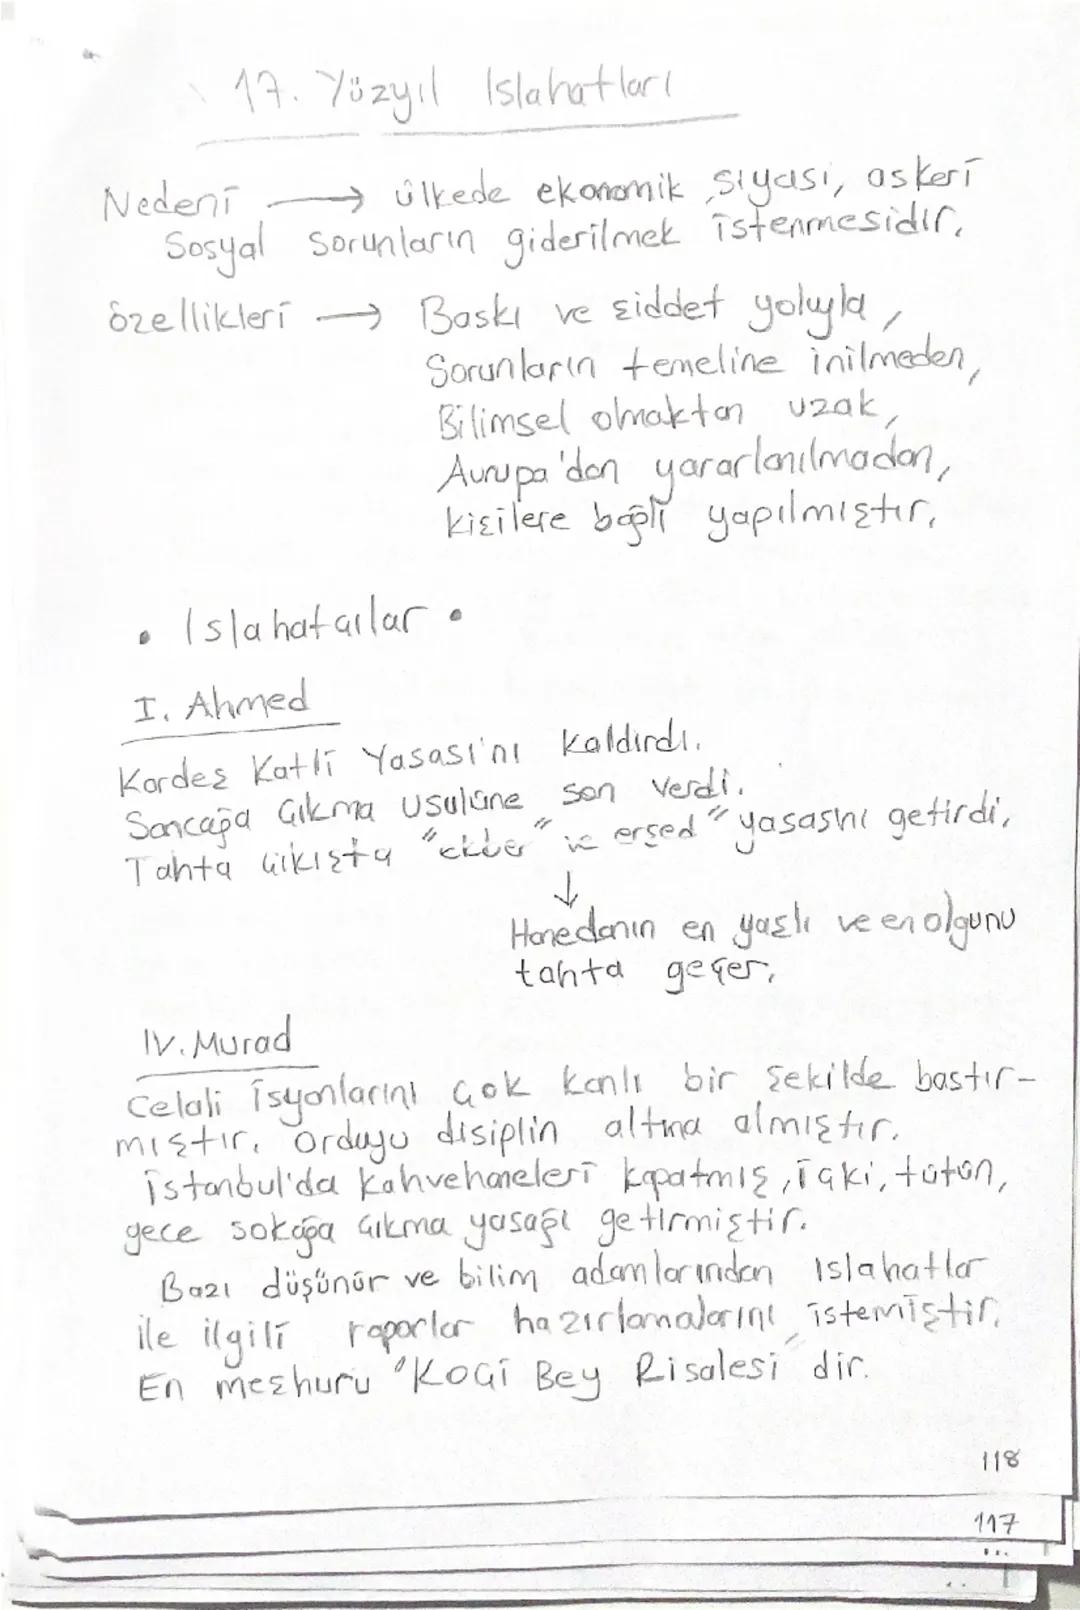 17. Yüzyıl Islahatları
Nedeni → ülkede ekonomik, siyasi, askeri
Sosyal sorunların giderilmek istenmesidir.
özellikleri → Baskı ve şiddet yoluyla,
Sorunların temeline inilmeden,
Bilimsel olmaktan uzak,
Avrupa'dan yararlanılmadan,
kişilere bağlı yapılmıştır.
• Islahatçılar •
I. Ahmed
Kardeş Katli Yasası'nı kaldırdı.
Sancağa Çıkma usulüne son verdi.
Tahta çıkışta "ekber" ve erşed" yasasını getirdi.
↓
Hanedanın en yaşlı ve en olgunu
tahta geçer.
IV. Murad
Celali isyanlarını çok kanlı bir şekilde bastır-
mıştır. Orduyu disiplin altına almıştır.
istanbul'da kahvehaneleri kapatmış, içki, tütün,
gece sokağa çıkma yasağı getirmiştir.
Bazı düşünür ve bilim adamlarından ıslahatlar
ile ilgili raporlar hazırlamalarını istemiştir.
En meşhuru "KOÇİ Bey Risalesi" dir.
118
117